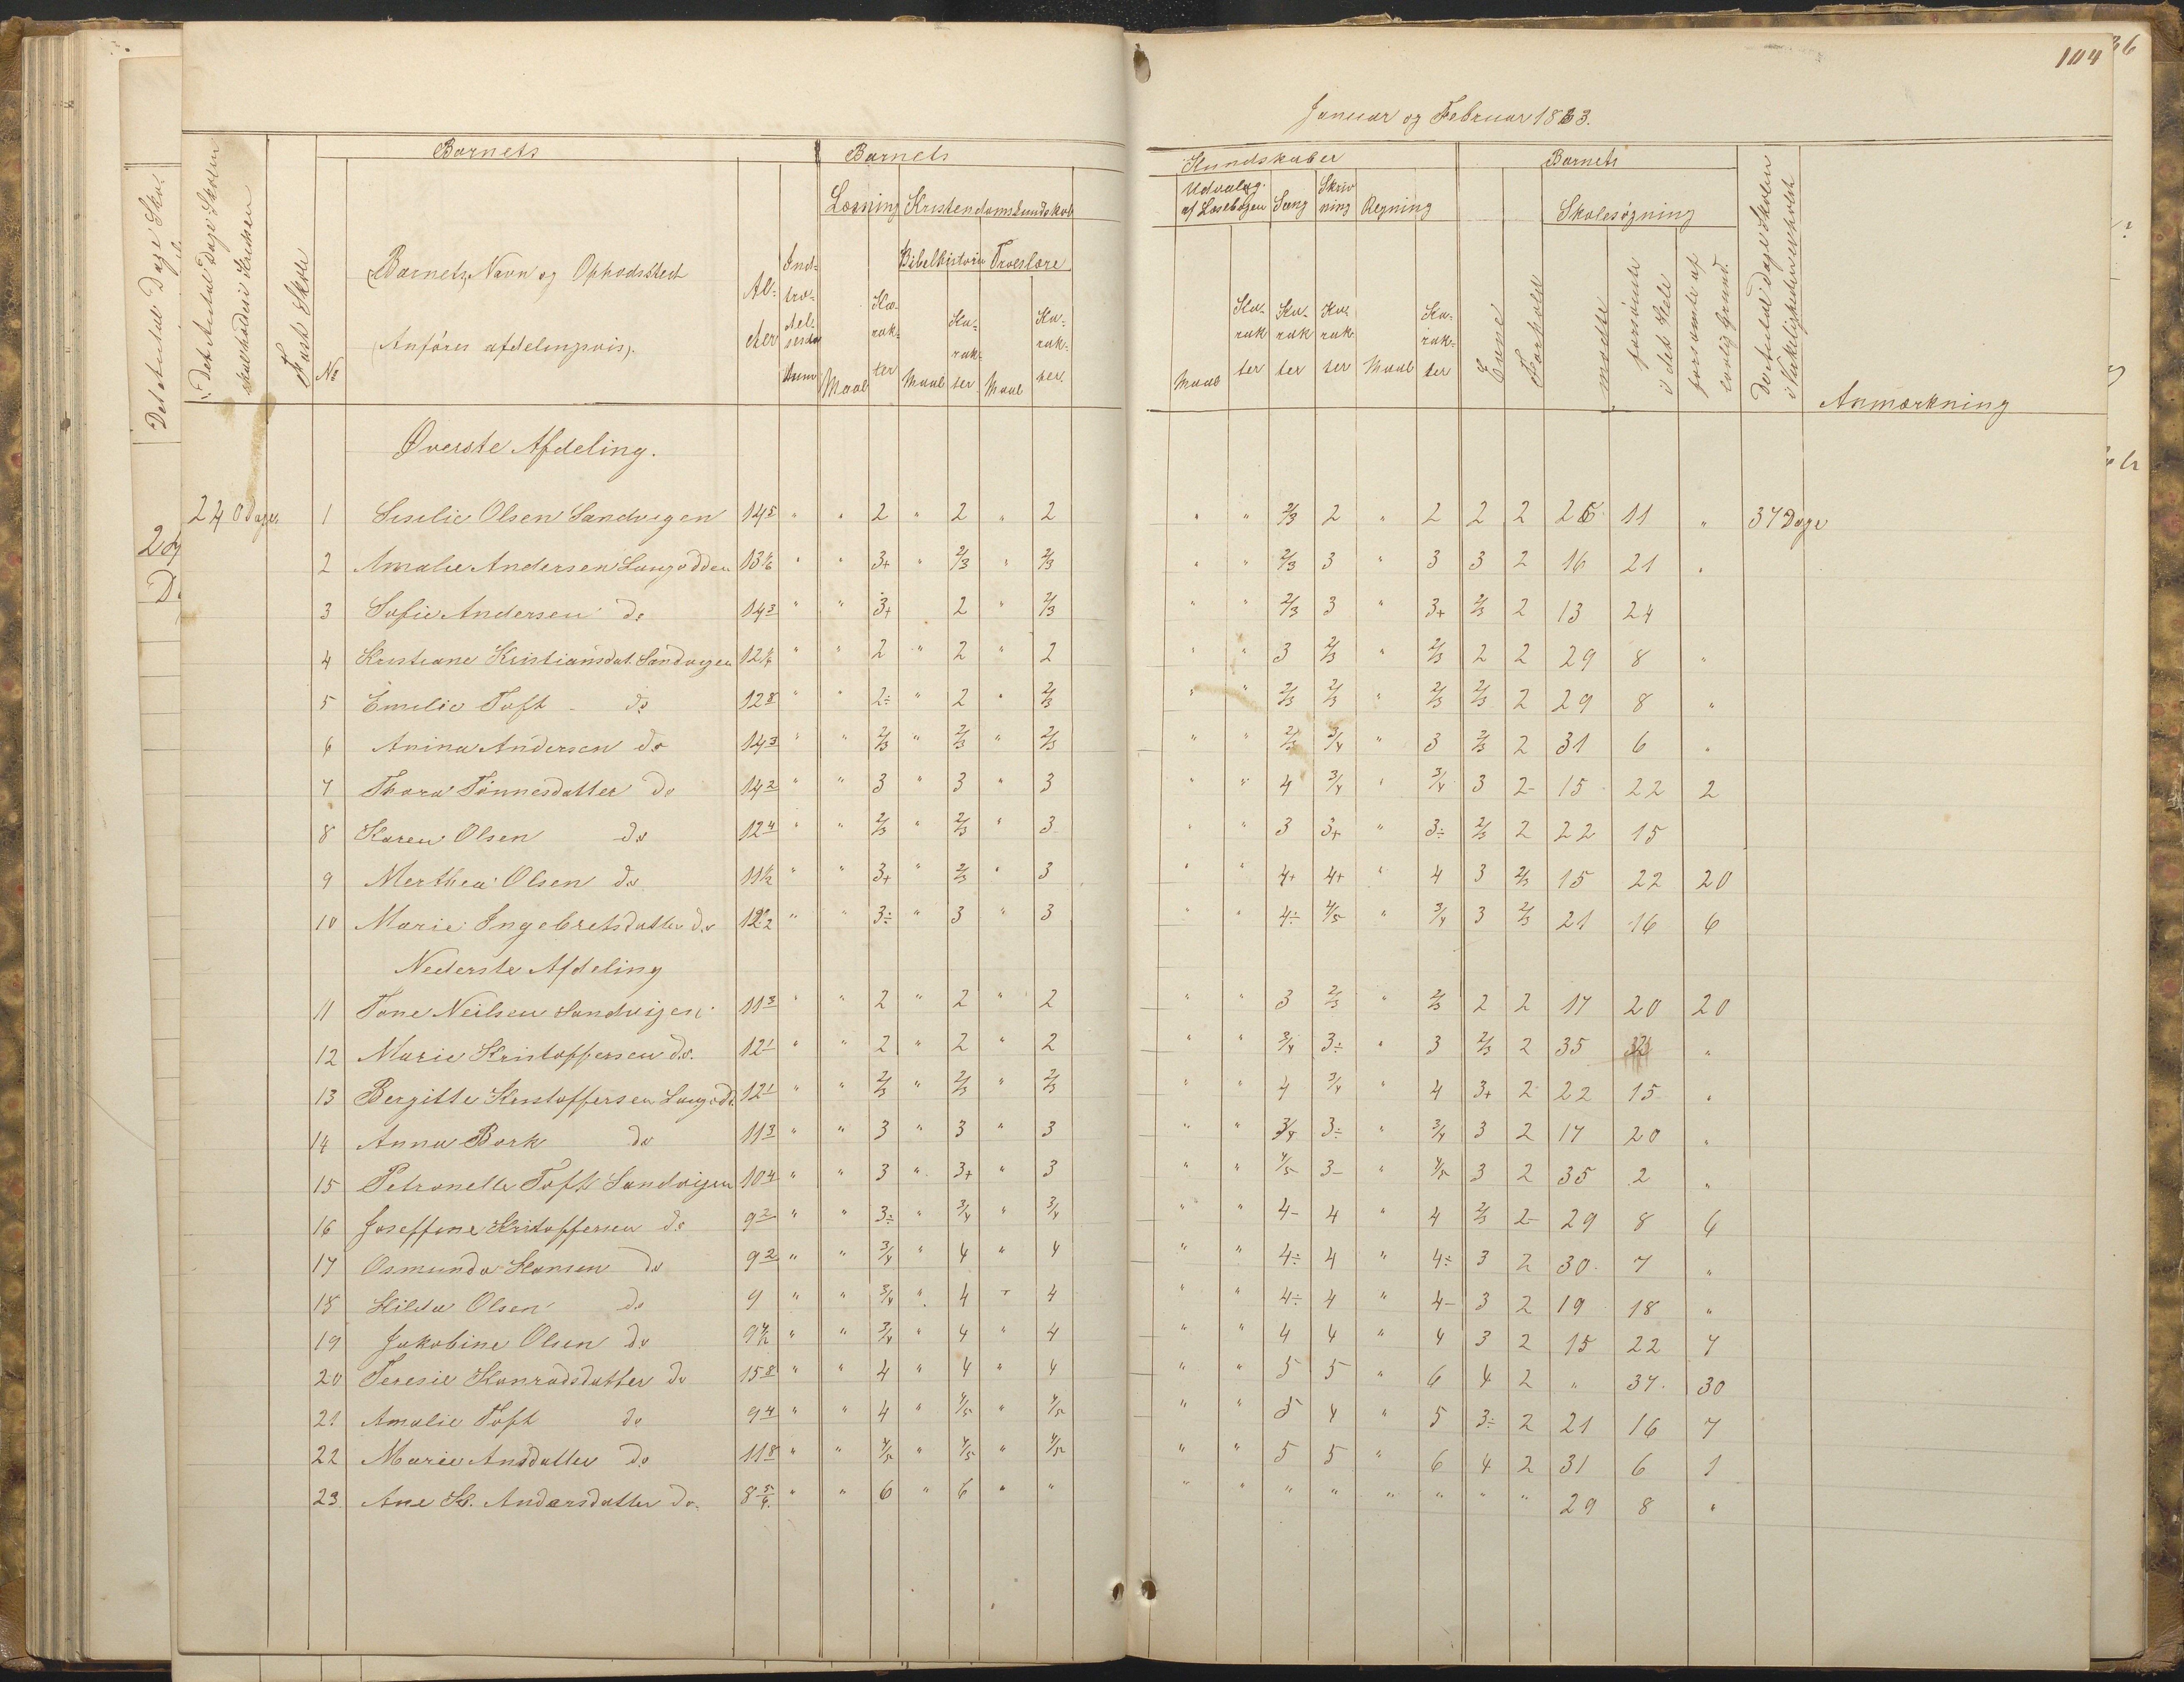 104
36
Januar og Februar 1883.
Det Antal Dage Skolen skal holdes i Kredsen
Fast Skole
Barnets
No
Barnets Navn og Opholdssted
(Anføres afdelingsvis).
Al- der
Ind- træ- delses- datum
Barnets
Læsning Kristendomskundskab
Bibelhistorie Troeslære
Maal Ka- rak- ter Maal Ka- rak- ter Maal Ka- rak- ter
Kundskaber
Udvalg af Læsebogen Sang Skriv ning Regning
Maal Ka- rak ter Ka- rak ter Ka- rak ter Maal Ka- rak- ter
Barnets
Evne Forhold
Skolesøgning
mødte forsømte i det Hele forsømte af lovlig Grund
Det Antal Dage Skolen i Virkeligheden er holdt
Anmærkning
Øverste Afdeling.
240 Dage 1 Siselie Olsen Sandvigen 14 5 " " 2 " 2 " 2 " " 2/3 2 " 2 2 2 26 11 " 37 Dage
2 Amalie Andersen Langodden 13 1/6 " " 3+ " 2/3 " 2/3 " " 2/3 3 " 3 3 2 16 21 "
3 Sofie Andersen do 14 3 " " 3+ 2 " 2/3 " " 2/3 3 " 3+ 2/3 2 13 24
4 Kristiane Kristiansdat. Sandvigen 12 1/6 " " 2 " 2 " 2 " " 3 2/3 " 2/3 2 2 29 8 "
5 Emelie Toft do 12 8 " " 2÷ " 2 " 2/3 " " 2/3 2/3 " 2/3 2/3 2 29 8 "
6 Anina Andersen do 14 3 " " 2/3 " 2/3 " 2/3 " " 2/3 3/4 " 3 2/3 2 31 6 "
7 Thora Tønnesdatter do 14 2 " " 3 " 3 " 3 " " 4 3/4 " 3/4 3 2- 15 22 2
8 Karen Olsen do 12 4 " " 2/3 " 2/3 " 3 " " 3 3+ " 3÷ 2/3 2 22 15
9 Merthea Olsen do 11 1/2 " " 3+ " 2/3 " 3 " " 4+ 4+ " 4 3 2/3 15 22 20
10 Marie Ingebretsdatter do 12 " " 3÷ " 3 " 3 " " 4÷ 4/5 " 3/4 3 2/3 21 16 6
Nederste Afdeling
11 Tone Neilsen Sandvigen 11 3 " " 2 " 2 " 2 " " 3 2/3 " 2/3 2 2 17 20 20
12 Marie Kristoffersen do. 12 1 " " 2 " 2 " 2 " " 3/4 3÷ " 3 2/3 2 35 "
13 Bergitte Kristoffersen Langodd. 12 1 " " 2/3 " 2/3 " 2/3 " " 4 3/4 " 4 3+ 2 22 15 "
14 Anna Bork do 11 3 " " 3 " 3 " 3 " " 3/4 3÷ " 3/4 3 2 17 20 "
15 Petronelle Toft Sandvigen 10 4 " " 3 " 3+ " 3 " " 4/5 3- " 4/5 3 2 35 2 "
16 Joseffine Kristoffersen do 9 2 " " 3÷ " 3/4 " 3/4 " " 4- 4 " 4 2/3 2- 29 8 6
17 Osmunda Hansen do 9 2 " " 3/4 " 4 " 4 " " 4÷ 4 " 4÷ 3 2 30 7 "
18 Hilda Olsen do 9 " " 3/4 " 4 " 4 " " 4÷ 4 " 4- 3 2 19 18 "
19 Jakobine Olsen do 9 " " 3/4 " 4 " 4 " " 4 4 " 4 3 2 15 22 7
20 Teresie Konradsdatter do 15 8 " " 4 " 4 " 4 " " 5 5 " 6 4 2 " 37 30
21 Amalie Toft do 9 4 " " 4 " 4/5 " 4/5 " " 5 4 " 5 3÷ 2 21 16 7
22 Marie Ansdatter do 11 8 " " 4/5 " 4/5 " 4/5 " " 5 5 " 6 4 2 31 6 1
23 Ane K. Andersdatter do. 8 5/4 " " 6 " 6 " " " " " " " " " " 29 8 "